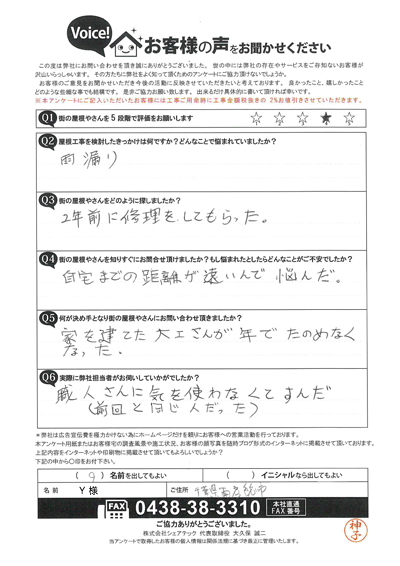 Voice!
お客様の声をお聞かせください
この度は弊社にお問い合わせを頂き誠にありがとうございました。世の中には弊社の存在やサービスをご存知ないお客様が
沢山いらっしゃいます。その方たちに弊社をよく知って頂くためのアンケートにご協力頂けないでしょうか。
お客様のご意見をお聞かせいただき今後の活動に反映させていただきたいと考えております。良かったこと、嬉しかったこと
どのような些細な事でも結構です。是非ご協力お願い致します。出来るだけ具体的に書いて頂ければ幸いです。
※本アンケートにご記入いただいたお客様には工事ご用命時に工事金額税抜きの2%お値引きさせていただきます。
Q1 街の屋根やさんを5段階で評価をお願いします ☆ ☆ ☆ ★ ☆
Q2 屋根工事を検討したきっかけは何ですか?どんなことで悩まれていましたか?
雨漏り
Q3 街の屋根やさんをどのように探しましたか?
2年前に修理をしてもらった。
Q4 街の屋根やさんを知りすぐにお問合せ頂けましたか?もし悩まれたとしたらどんなことがご不安でしたか?
自宅までの距離が遠いんで悩んだ。
Q5 何が決め手となり街の屋根やさんにお問い合わせ頂きましたか?
家を建てた大工さんが年でたのめなく
なった.
Q6 実際に弊社担当者がお伺いしていかがでしたか?
職人さんに気を使わなくてすんだ
(前回と同じ人だった)
※弊社は広告宣伝費を極力かけない為にホームページだけを頼りにお客様への営業活動を行っております。
本アンケート用紙またはお客様宅の調査風景や施工状況、お客様の顔写真を随時ブログ形式のインターネットに掲載させて頂いております。
上記内容をインターネットや印刷物に掲載させて頂いてもよろしいでしょうか?
下記の中から〇印をお付け下さい。
( ) 名前を出してもよい ( ) イニシャルなら出してもよい
名前 Y様 ご住所 千葉県南房総市
FAX 0438-38-3310 本社直通 FAX番号
ご協力ありがとうございました。
株式会社シェアテック 代表取締役 大久保 誠二
当アンケートで取得したお客様の個人情報は関係法規に基づき厳正に管理いたします。
神子